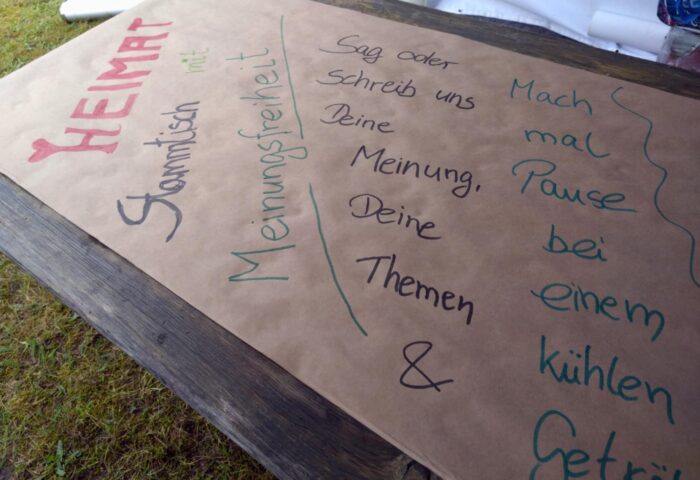 HEIMAT
Stammtisch mit
Meinungsfreiheit
Sag oder
schreib uns
Deine
Meinung,
Deine
Themen
&
Mach
mal
Pause
bei
einem
kühlen